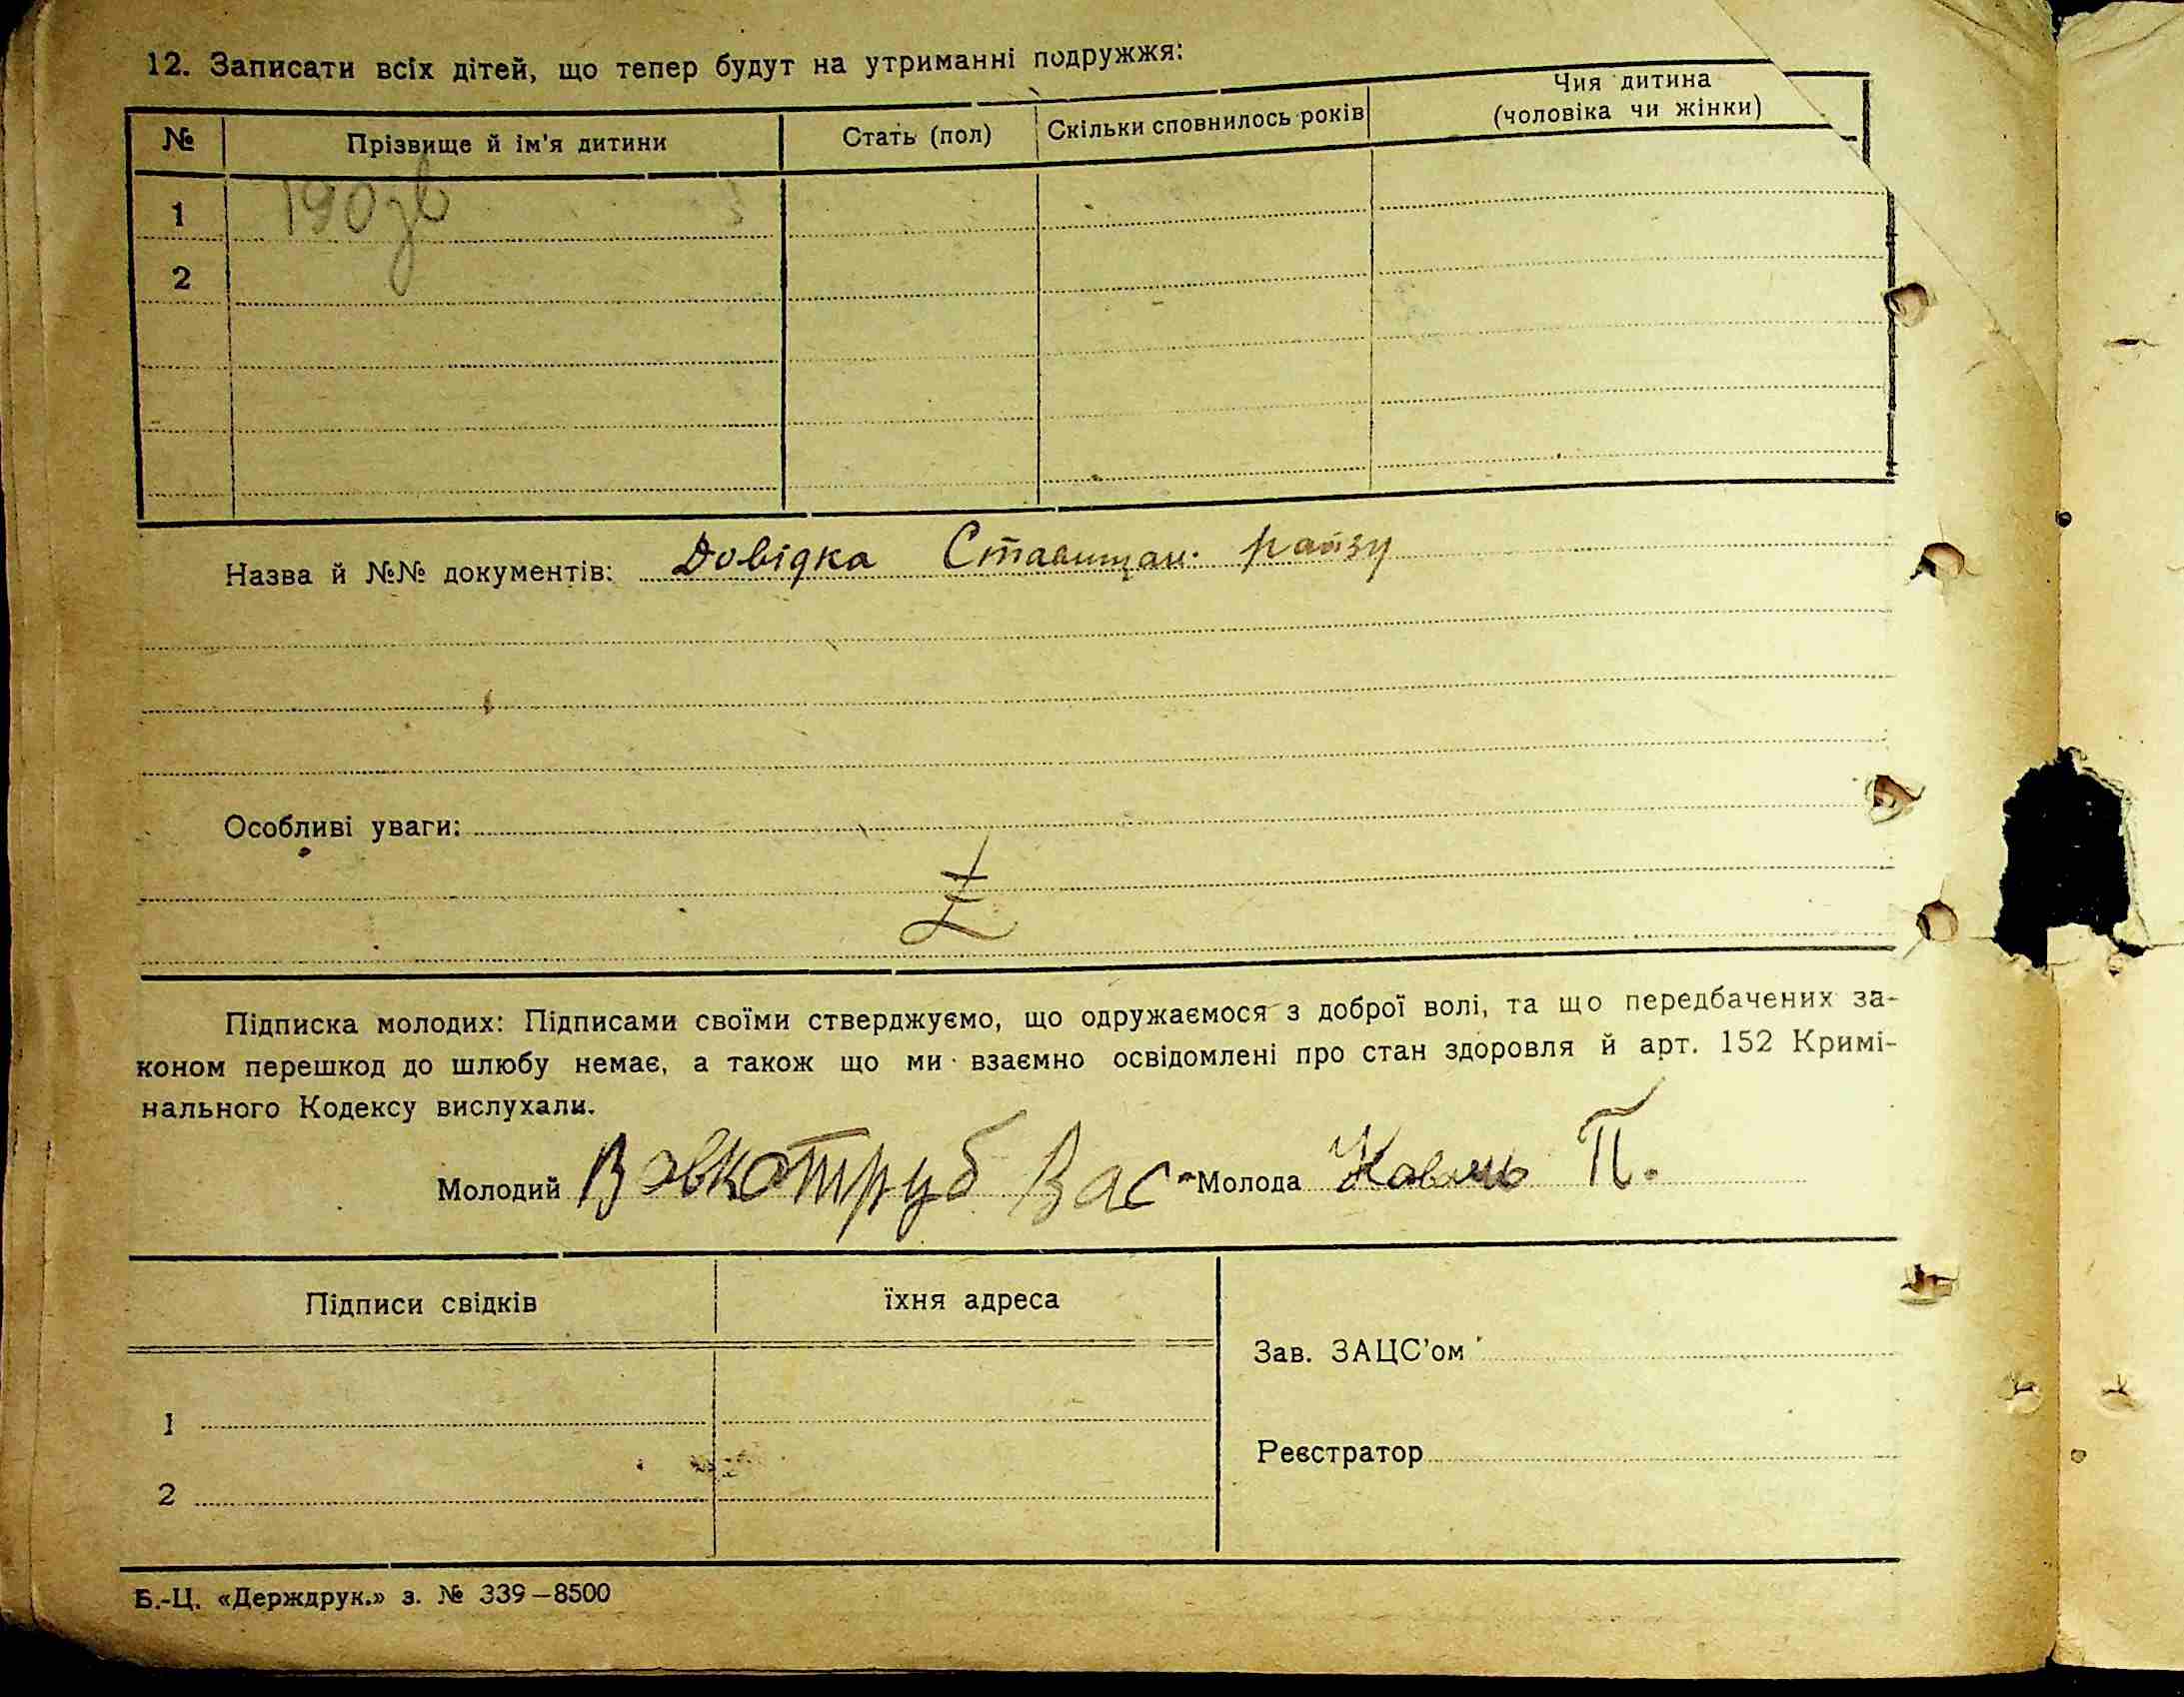 12. Записати всіх дітей, що тепер будут на утриманні подружжя:
№ Прізвище й ім'я дитини Стать (пол) Скільки сповнилось років Чия дитина (чоловіка чи жінки)
1 190зв
2
Назва й №№ документів: Довідка Ставищан. райзу
Особливі уваги:
Підписка молодих: Підписами своїми стверджуємо, що одружаємося з доброї волі, та що передбачених за-
коном перешкод до шлюбу немає, а також що ми взаємно освідомлені про стан здоровля й арт. 152 Кримі-
нального Кодексу вислухали.
Молодий Вовкотруб Вас Молода Коваль П.
Підписи свідків їхня адреса
Зав. ЗАЦС'ом
1
Реєстратор
2
Б.-Ц. «Держдрук.» з. № 339—8500